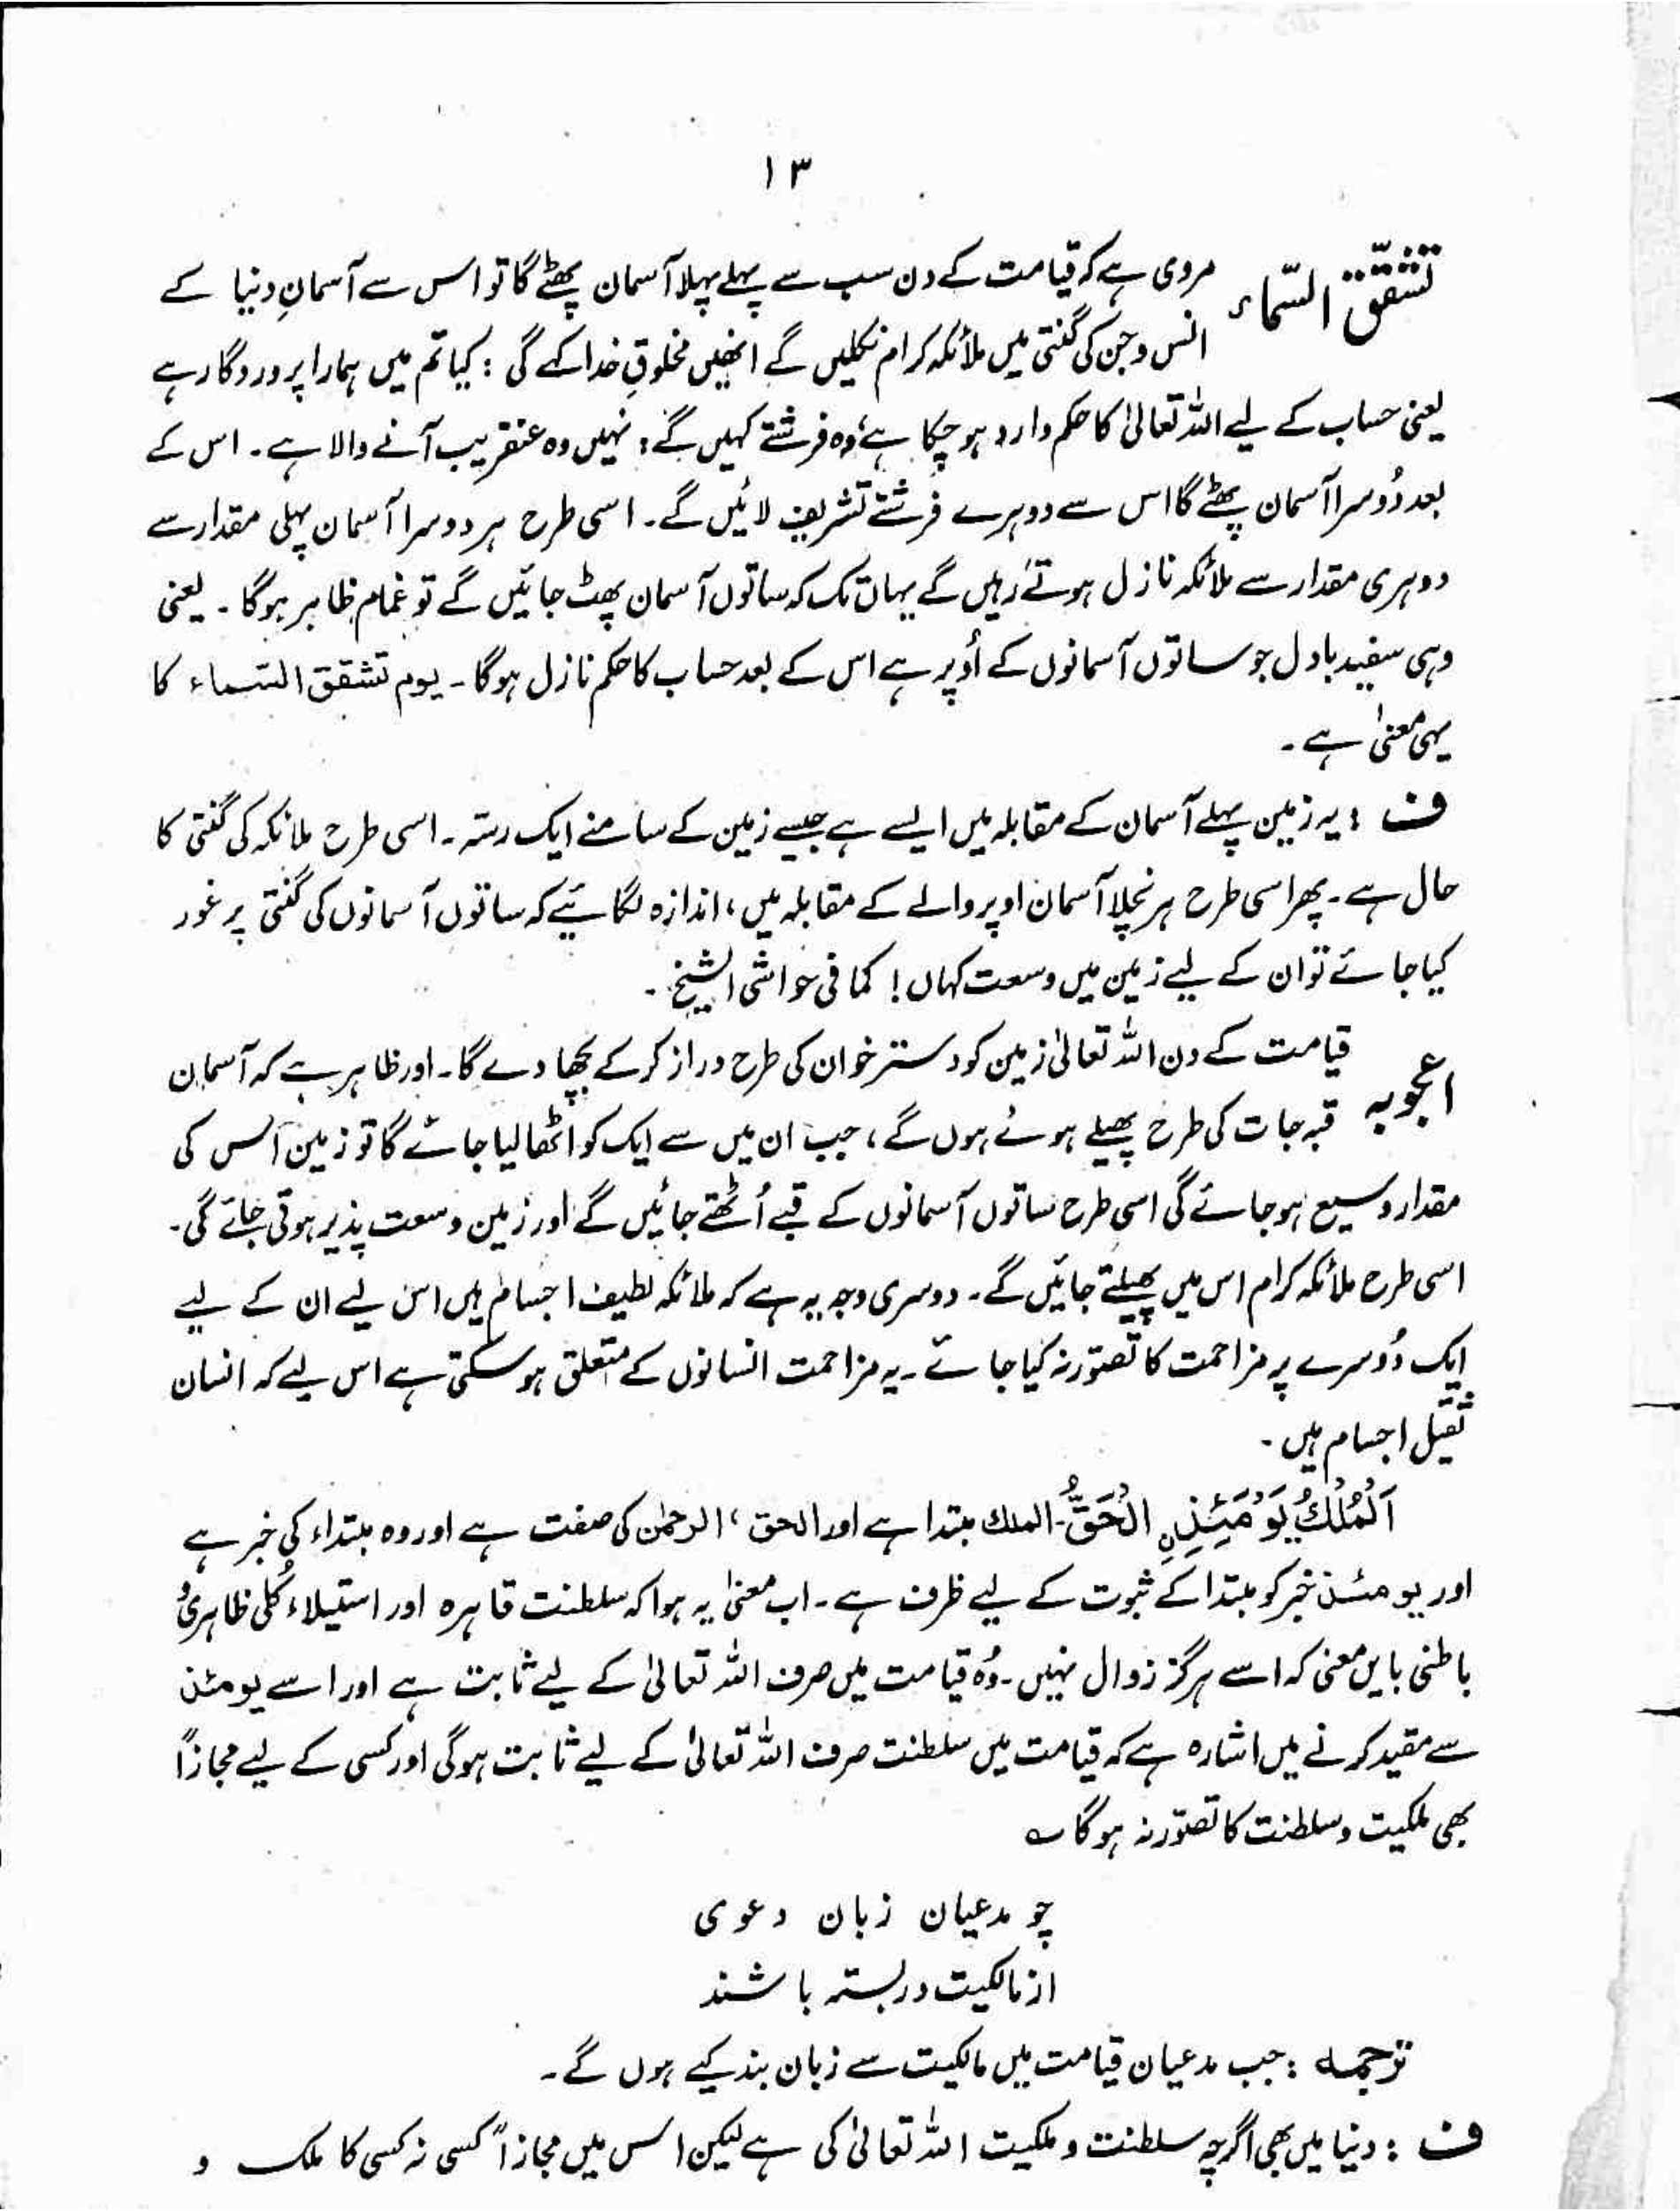 ۱۳
تشقق السّماء مروی ہے کہ قیامت کے دن سب سے پہلے پہلا آسمان پھٹے گا تو اس سے آسمانِ دنیا کے
انس و جن کی گنتی میں ملائکہ کرام نکلیں گے انھیں مخلوقِ خدا کہے گی : کیا تم میں ہمارا پروردگار ہے
یعنی حساب کے لیے اللہ تعالیٰ کا حکم وارد ہو چکا ہے، وہ فرشتے کہیں گے : نہیں وہ عنقریب آنے والا ہے ۔ اس کے
بعد دُوسرا آسمان پھٹے گا اس سے دوہرے فرشتے تشریف لائیں گے ۔ اسی طرح ہر دوسرا آسمان پہلی مقدار سے
دوہری مقدار سے ملائکہ نازل ہوتے رہیں گے یہاں تک کہ ساتوں آسمان پھٹ جائیں گے تو غمام ظاہر ہوگا ۔ یعنی
وہی سفید بادل جو ساتوں آسمانوں کے اُوپر ہے اس کے بعد حساب کا حکم نازل ہوگا ۔ یوم تشقق السّماء کا
یہی معنیٰ ہے ۔
ف : یہ زمین پہلے آسمان کے مقابلہ میں ایسے ہے جیسے زمین کے سامنے ایک رستہ ۔ اسی طرح ملائکہ کی گنتی کا
حال ہے ۔ پھر اسی طرح ہر نچلا آسمان اوپر والے کے مقابلہ میں ، اندازہ لگائیے کہ ساتوں آسمانوں کی گنتی پر غور
کیا جائے تو ان کے لیے زمین میں وسعت کہاں ! کما فی حواشی الشیخ ۔
اعجوبہ قیامت کے دن اللہ تعالیٰ زمین کو دسترخوان کی طرح دراز کر کے بچھا دے گا ۔ اور ظاہر ہے کہ آسمان
قبہ جات کی طرح پھیلے ہوئے ہوں گے ، جب ان میں سے ایک کو اٹھا لیا جائے گا تو زمین اس کی
مقدار وسیع ہو جائے گی اسی طرح ساتوں آسمانوں کے قبے اُٹھتے جائیں گے اور زمین وسعت پذیر ہوتی جائے گی ۔
اسی طرح ملائکہ کرام اس میں پھیلتے جائیں گے ۔ دوسری وجہ یہ ہے کہ ملائکہ لطیف اجسام ہیں اس لیے ان کے لیے
ایک دُوسرے پر مزاحمت کا تصوّر نہ کیا جائے ۔ یہ مزاحمت انسانوں کے متعلق ہو سکتی ہے اس لیے کہ انسان
ثقیل اجسام ہیں ۔
اَلْمُلْكُ يَوْمَئِذِنِ الْحَقُّ۔ الملك مبتدا ہے اور الحق ، الرحمٰن کی صفت ہے اور وہ مبتداء کی خبر ہے
اور یومئذ خبر کو مبتدا کے ثبوت کے لیے ظرف ہے ۔ اب معنیٰ یہ ہوا کہ سلطنت قاہرہ اور استیلاء کُلی ظاہری و
باطنی بایں معنی کہ اسے ہرگز زوال نہیں ۔ وُہ قیامت میں صرف اللہ تعالیٰ کے لیے ثابت ہے اور اسے یومئذ
سے مقید کرنے میں اشارہ ہے کہ قیامت میں سلطنت صرف اللہ تعالیٰ کے لیے ثابت ہوگی اور کسی کے لیے مجازاً
بھی ملکیت و سلطنت کا تصوّر نہ ہو گا ؎
چو مدعیان زبان دعوی
از مالکیت در بستہ باشند
ترجمہ : جب مدعیان قیامت میں مالکیت سے زبان بند کیے ہوں گے ۔
ف : دنیا میں بھی اگرچہ سلطنت و ملکیت اللہ تعالیٰ کی ہے لیکن اس میں مجازاً کسی نہ کسی کا ملک و